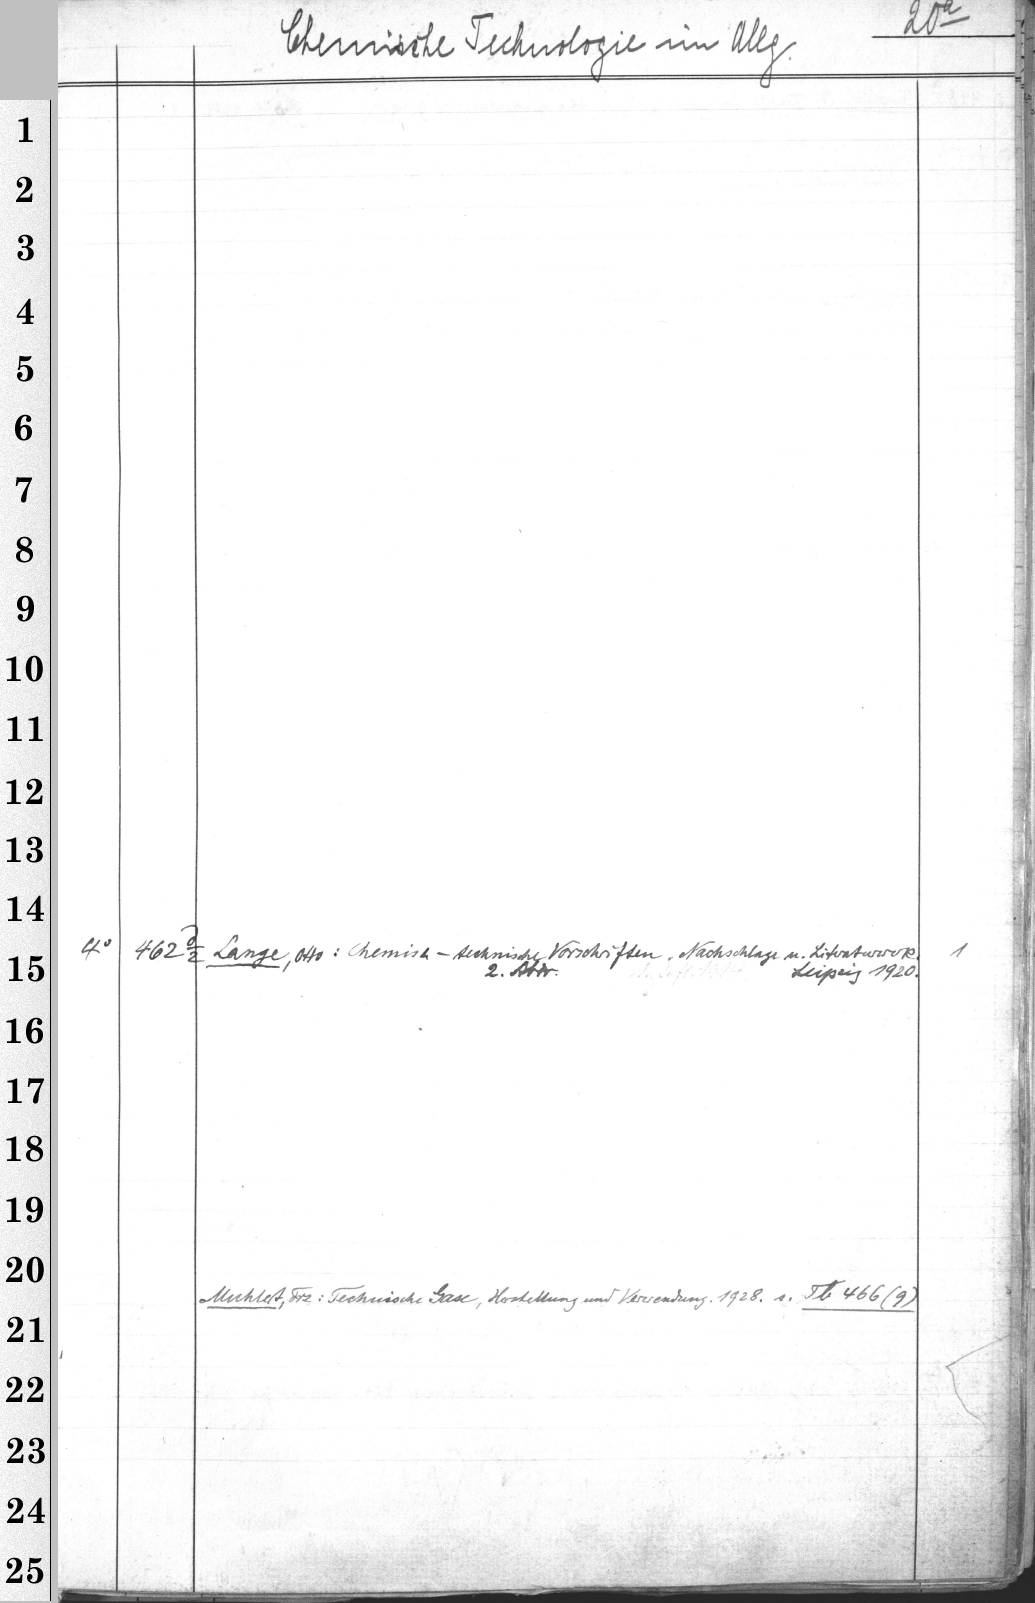 20a
Chemische Technologie im Allg.
1
2
3
4
5
6
7
8
9
10
11
12
13
14
4° 462 Lange, Otto: Chemisch-technische Vorschriften. Nachschlage u. Literaturwerk. 1
2. Leipzig 1920.
15
16
17
18
19
20
Muhlert, Frz: Technische Gase, Herstellung und Verwendung. 1928. s. Tb 466 (9)
21
22
23
24
25